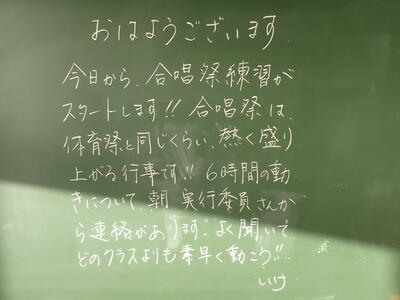 おはようございます
今日から、合唱祭練習が
スタートします!! 合唱祭は、
体育祭と同じくらい、熱く盛り
上がる行事です!! 6時間の動
きについて、朝 実行委員さんか
ら連絡があります。よく聞いて、
どのクラスよりも素早く動こう!!
いけ